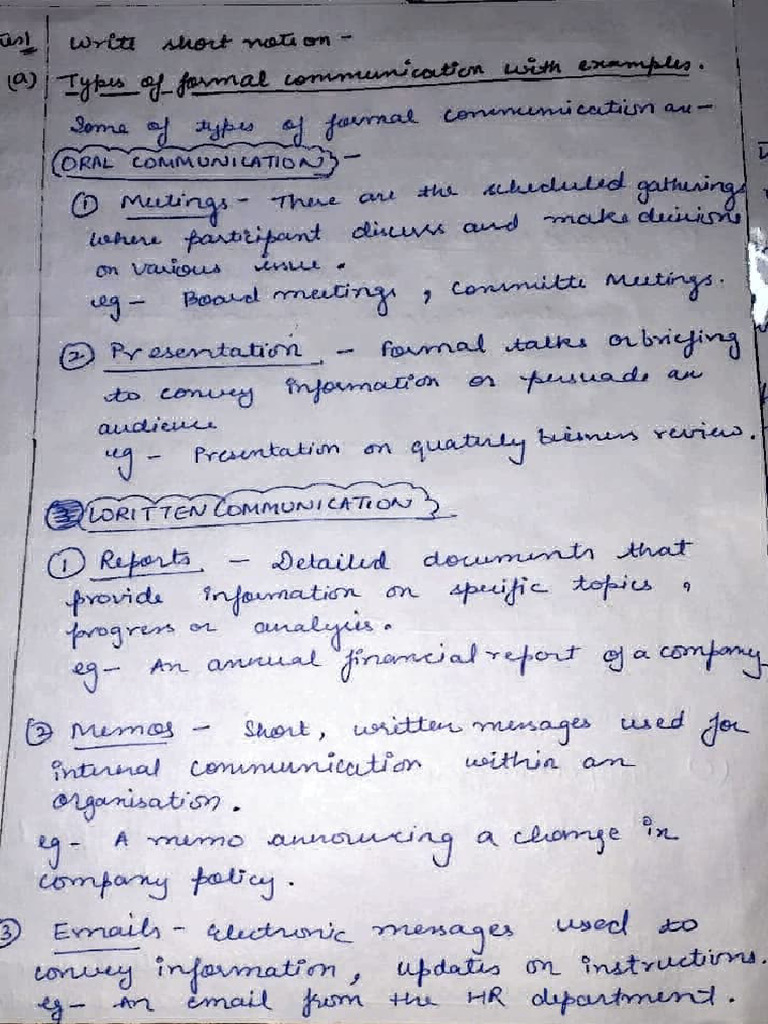 Write short note on -
(a) Types of formal communication with examples.
Some of types of formal communication are -
ORAL COMMUNICATION -
① Meetings - There are the scheduled gatherings
where participant discuss and make decisions
on various issue.
eg - Board meetings, Committe Meetings.
② Presentation - Formal talks or briefing
to convey information or persuade an
audience
eg - Presentation on quaterly business review.
WRITTEN COMMUNICATION
① Reports - Detailed documents that
provide information on specific topics,
progress or analysis.
eg - An annual financial report of a company
② Memos - Short, written messages used for
internal communication within an
organisation.
eg - A memo announcing a change in
company policy.
③ Emails - Electronic messages used to
convey information, updates or instructions.
eg - An email from the HR department.